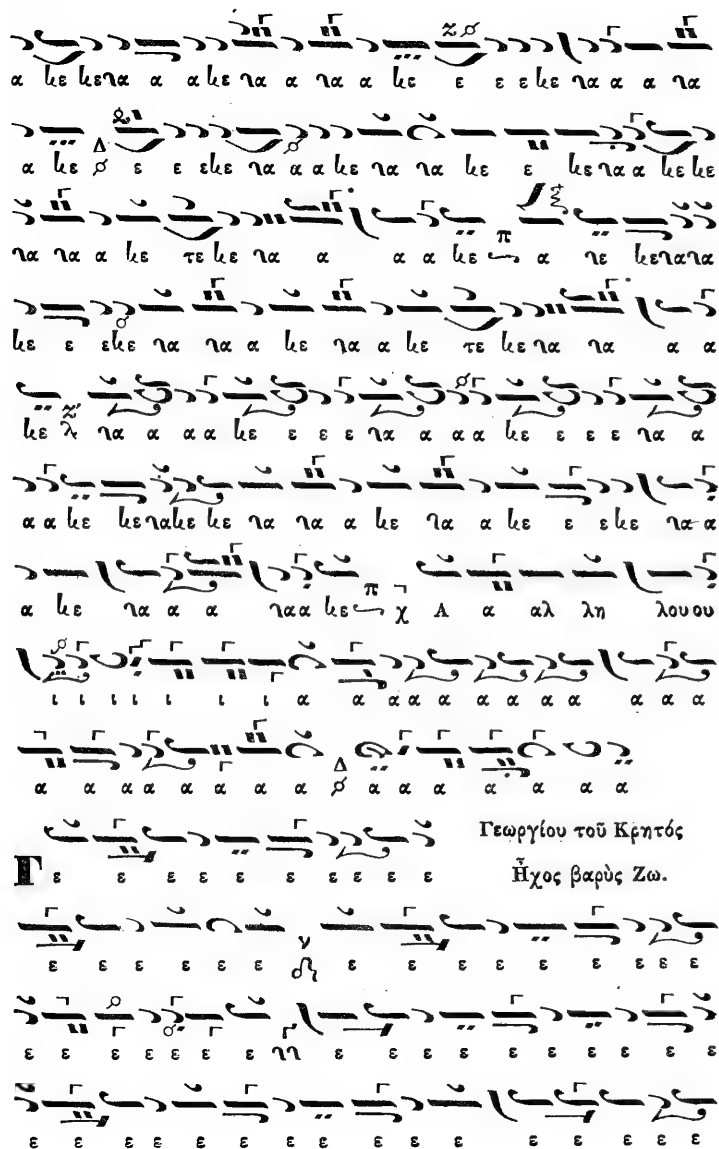 α κε κενα α α κε να α να α κε ε ε ε κε να α α να
α κε Δ ε ε ε κε να α α κε να να κε ε κε να α κε κε
να να α κε τε κε να α α α κε π α νε κε να να
κε ε ε κε να να α κε να α κε τε κε να να α α
κε λ να α α α κε ε ε ε να α α α κε ε ε ε να α
α α κε κε να κε κε να να α κε να α κε ε ε κε να α
α κε να α α να α κε π χ Α α αλ λη λου ου
ι ι ι ι ι ι ι α α α α α α α α α α α
α α α α α α α α α Δ α α α α α α α
Γεωργίου τοῦ Κρητός
Ἦχος βαρὺς Ζω.
Γ ε ε ε ε ε ε ε ε ε ε
ε ε ε ε ε ε ν ε ε ε ε ε ε ε ε ε
ε ε ε ε ε ε ε ε ε ε ε ε ε ε ε ε
ε ε ε ε ε ε ε ε ε ε ε ε ε ε ε ε